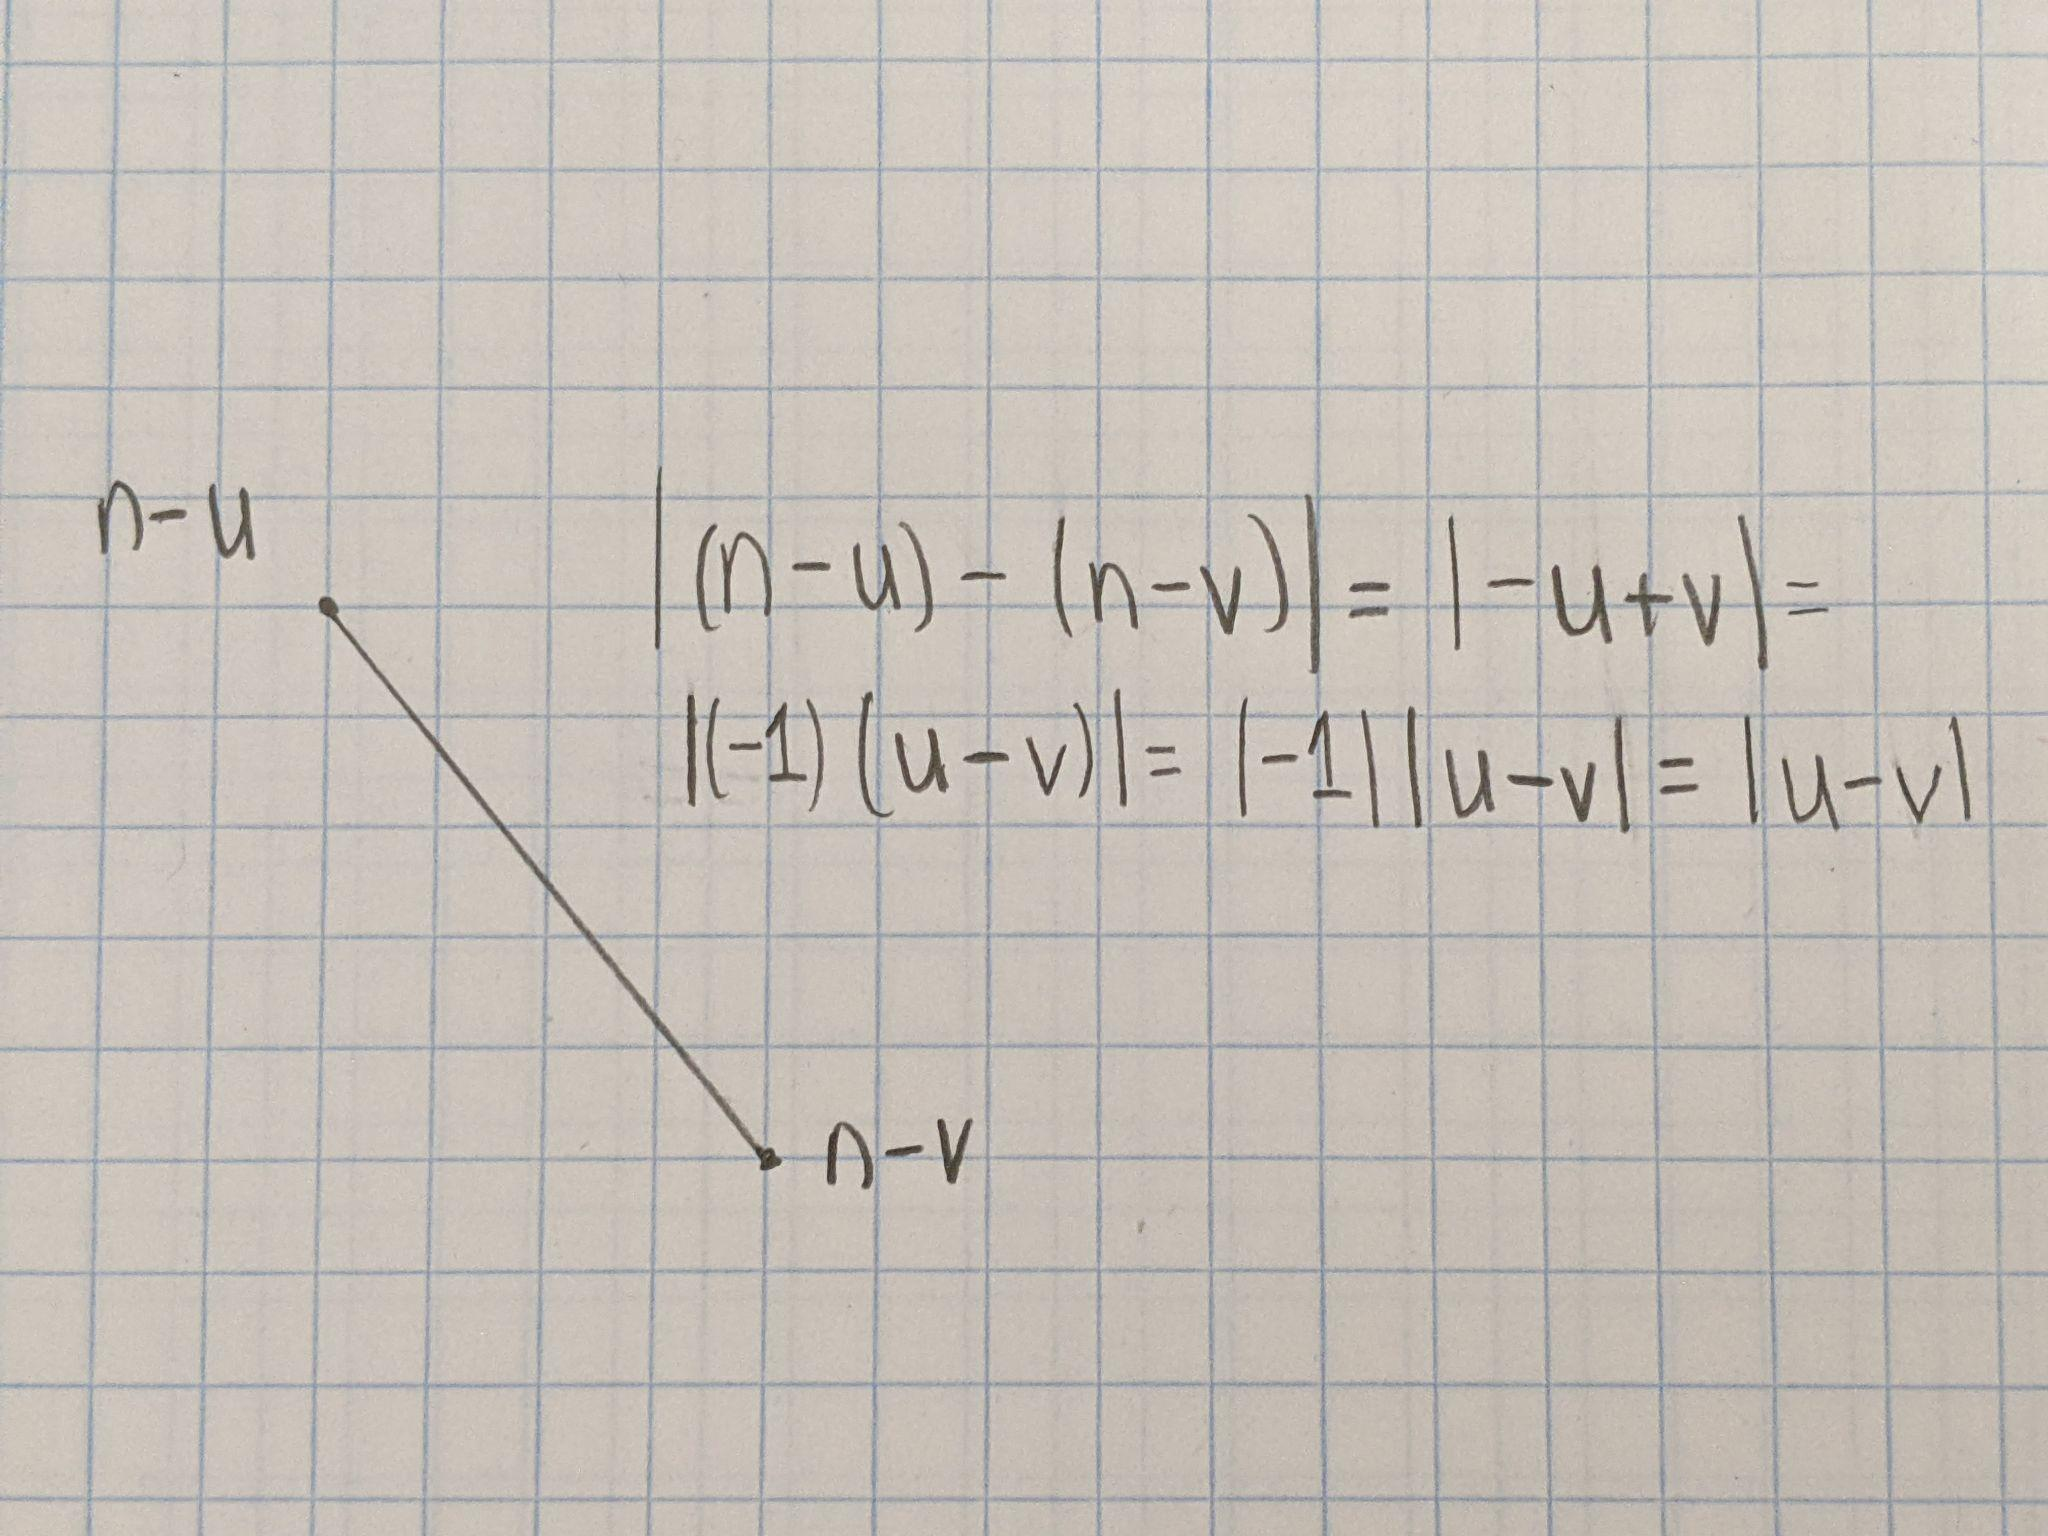 n-u
|(n-u)-(n-v)|=|-u+v|=
|(-1)(u-v)|=|-1||u-v|=|u-v|
n-v